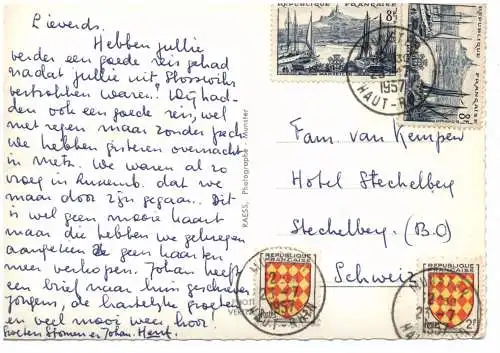 Lieverds.
Hebben jullie
verder een goede reis gehad
nadat jullie uit Stosswihr
vertrokken waren? Wij had-
den ook een goede reis, wel
met regen maar zonder pech
We hebben gisteren overnacht
in Metz. We waren al zo
vroeg in Luxemb. dat we
maar door zijn gegaan. Dit
is wel geen mooie kaart
maar die hebben we gekregen
aangezien ze geen kaarten
meer verkopen. Johan heeft
een brief naar huis geschreven
jongens, de hartelijke groeten
en veel mooi weer hoor.
Groeten Stomen er Johan. Henr.
RAESS, Photographe - Munster
Fam. van Kempen
Hotel Stechelberg
Stechelberg (B.O)
Schweiz
REPUBLIQUE FRANÇAISE
8F
MARSEILLE
REPUBLIQUE FRANÇAISE
8F
1957
HAUT-RHIN
REPUBLIQUE
FRANÇAISE
1957
HAUT-RHIN
REPUBLIQUE
FRANÇAISE
2F
1957